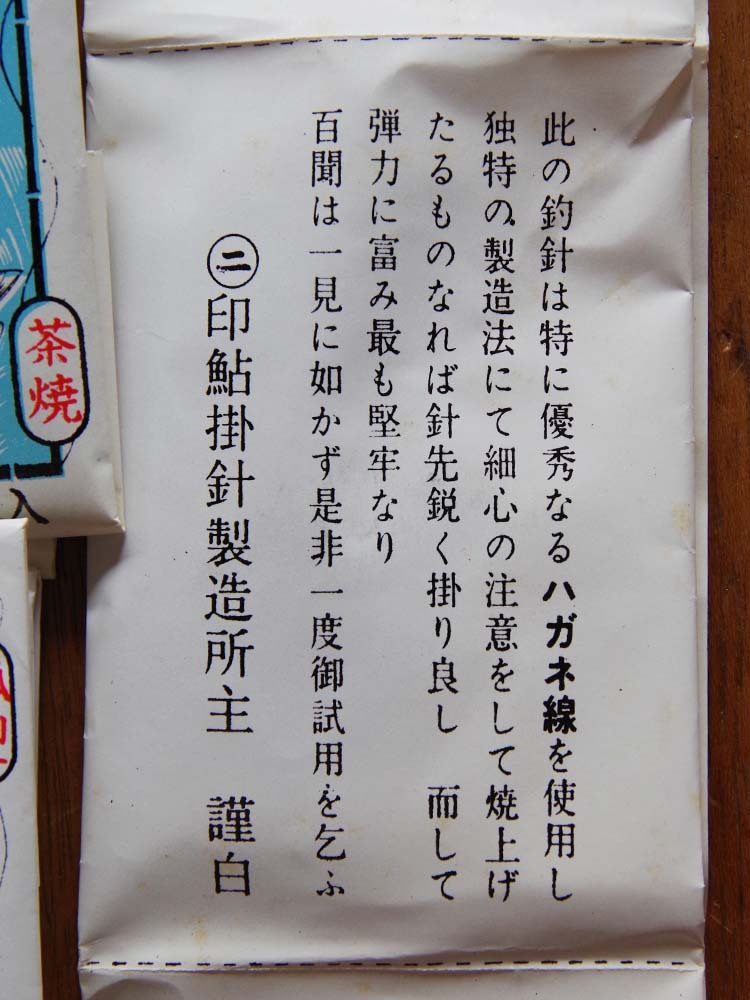 此の釣針は特に優秀なるハガネ線を使用し
独特の製造法にて細心の注意をして焼上げ
たるものなれば針先鋭く掛り良し　而して
弾力に富み最も堅牢なり
百聞は一見に如かず是非一度御試用を乞ふ
㊁印鮎掛針製造所主　謹白
茶焼
入